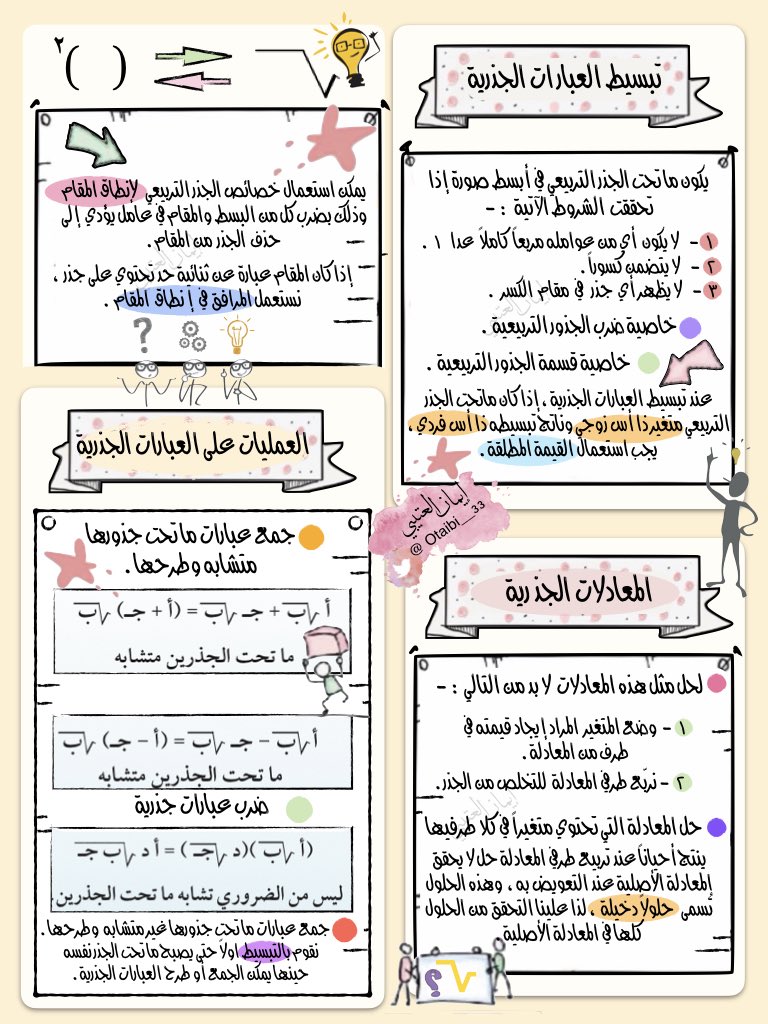 تبسيط العبارات الجذرية
يكون ما تحت الجذر التربيعي في أبسط صورة إذا
تحققت الشروط الآتية : -
١ - لا يكون أي من عوامله مربعاً كاملاً عدا ١ .
٢ - لا يتضمن كسوراً .
٣ - لا يظهر أي جذر في مقام الكسر .
خاصية ضرب الجذور التربيعية .
خاصية قسمة الجذور التربيعية .
عند تبسيط العبارات الجذرية ، إذا كان ما تحت الجذر
التربيعي متغير ذا أس زوجي وناتج تبسيطه ذا أس فردي ،
يجب استعمال القيمة المطلقة .
√ ( )٢
يمكن استعمال خصائص الجذر التربيعي لإنطاق المقام
وذلك بضرب كل من البسط والمقام في عامل يؤدي إلى
حذف الجذر من المقام .
إذا كان المقام عبارة عن ثنائية حد تحتوي على جذر ،
نستعمل المرافق في إنطاق المقام .
?
العمليات على العبارات الجذرية
جمع عبارات ما تحت جذورها
متشابه وطرحها .
أ√ب + جـ√ب = (أ + جـ)√ب
ما تحت الجذرين متشابه
أ√ب - جـ√ب = (أ - جـ)√ب
ما تحت الجذرين متشابه
ضرب عبارات جذرية
(أ√ب)(د√جـ) = أ د√ب جـ
ليس من الضروري تشابه ما تحت الجذرين.
جمع عبارات ما تحت جذورها غير متشابه وطرحها .
نقوم بالتبسيط اولاً حتى يصبح ما تحت الجذر نفسه
حينها يمكن الجمع أو طرح العبارات الجذرية .
إيمان العتيبي
@ Otaibi__33
المعادلات الجذرية
لحل مثل هذه المعادلات لا بد من التالي : -
١ - وضع المتغير المراد إيجاد قيمته في
طرف من المعادلة .
٢ - نربّع طرفي المعادلة للتخلص من الجذر.
حل المعادلة التي تحتوي متغيراً في كلا طرفيها
ينتج أحياناً عند تربيع طرفي المعادلة حل لا يحقق
المعادلة الأصلية عند التعويض به ، وهذه الحلول
تسمى حلولاً دخيلة ، لذا علينا التحقق من الحلول
كلها في المعادلة الأصلية
√ ؟